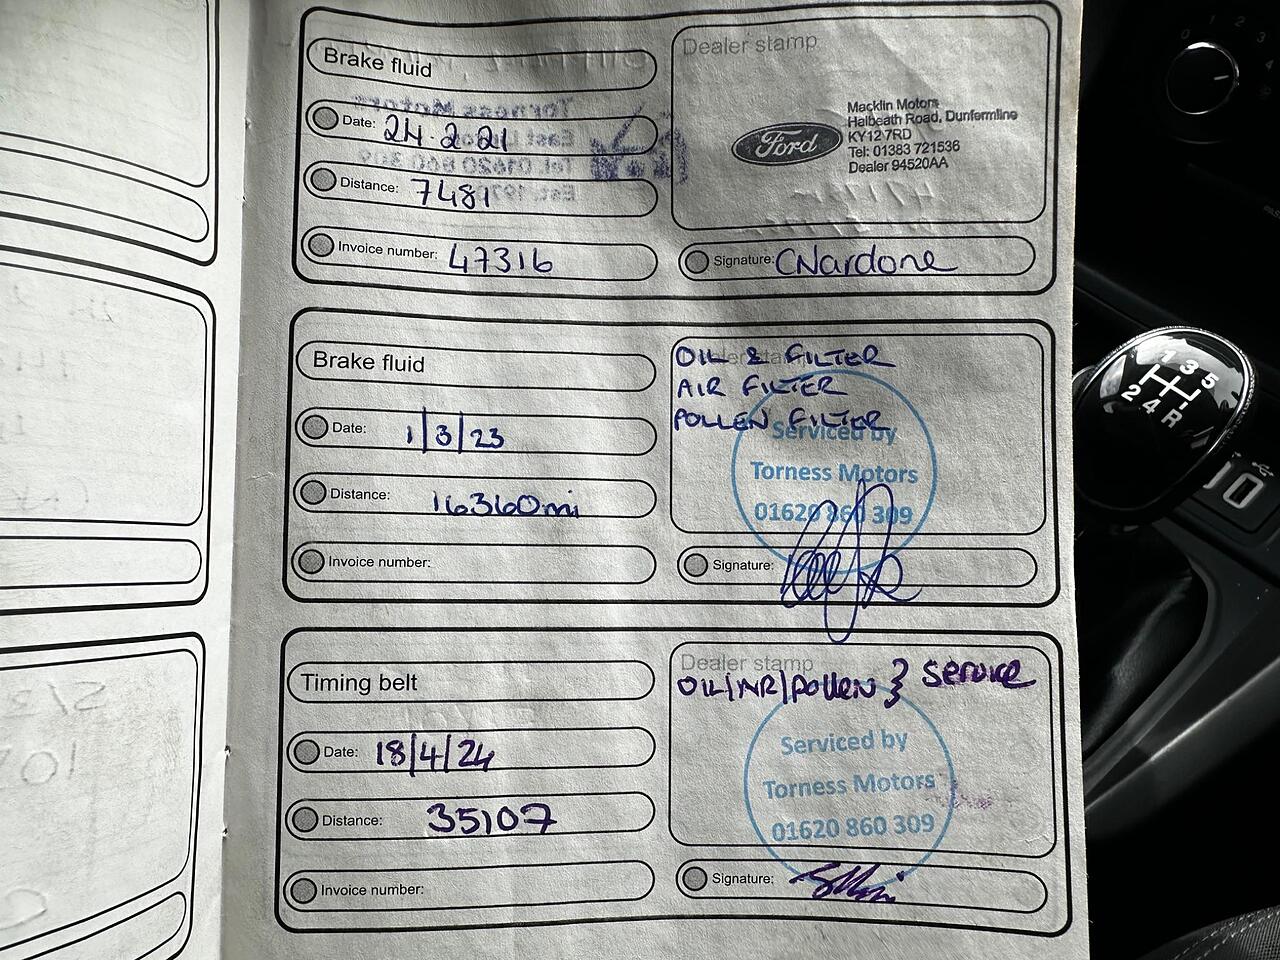 Brake fluid
Date: 24-2-21
Distance: 7481
Invoice number: 47316
Dealer stamp
Ford
Macklin Motors
Halbeath Road, Dunfermline
KY12 7RD
Tel: 01383 721536
Dealer 94520AA
Signature: CNardone
Brake fluid
Date: 1/3/23
Distance: 16360mi
Invoice number:
OIL & FILTER
AIR FILTER
POLLEN FILTER
Serviced by
Torness Motors
01620 860 309
Signature:
Timing belt
Date: 18/4/24
Distance: 35107
Invoice number:
Dealer stamp
OIL/AIR/POLLEN } SERVICE
Serviced by
Torness Motors
01620 860 309
Signature:
1 3 5
2 4 R